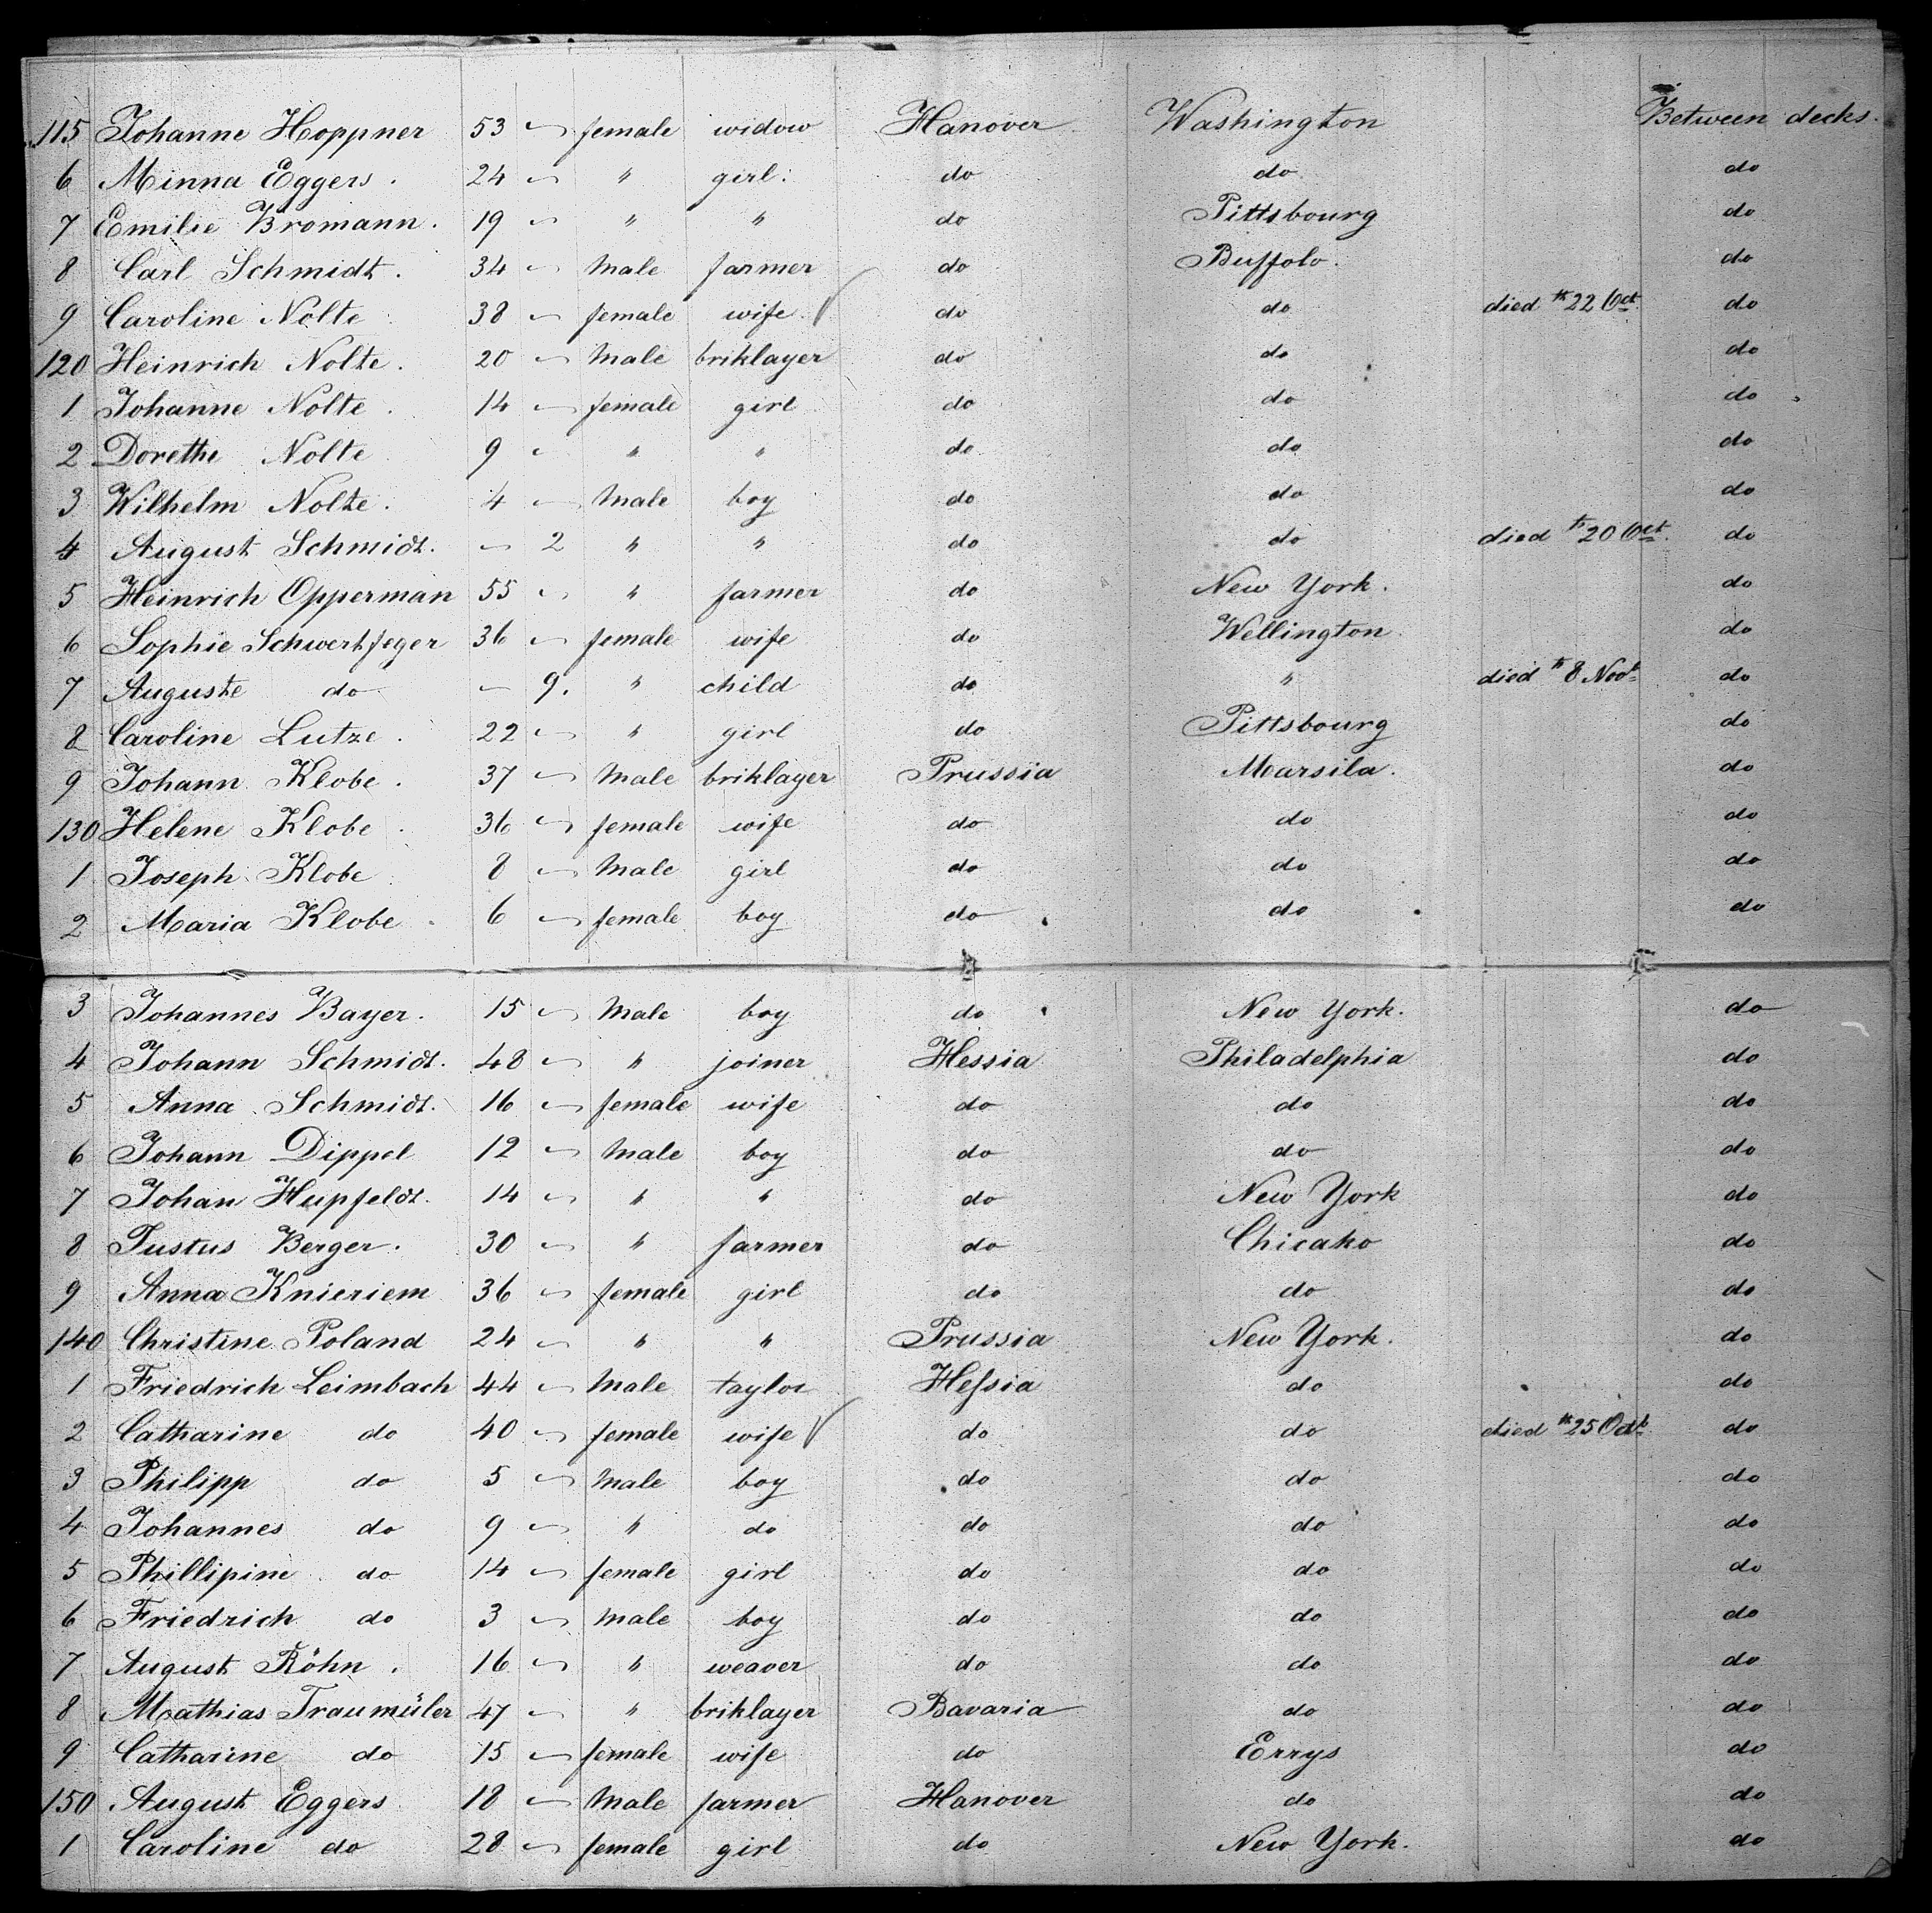 115 Johanne Hoppner 53 — female widow Hanover Washington Between decks.
6 Minna Eggers. 24 — " girl. do do do
7 Emilie Bromann. 19 — " " do Pittsbourg do
8 Carl Schmidt. 34 — Male farmer do Buffolo. do
9 Caroline Nolte 38 — female wife. do do died th 22 Oct. do
120 Heinrich Nolte. 20 — Male briklayer do do do
1 Johanne Nolte. 14 — female girl do do do
2 Dorethe Nolte 9 — " " do do do
3 Wilhelm Nolte. 4 — Male boy do do do
4 August Schmidt. — 2 " " do do died th 20 Oct. do
5 Heinrich Opperman 55 — " farmer do New York. do
6 Sophie Schwertfeger 36 — female wife do Wellington do
7 Auguste do — 9. " child do " died th 8 Novb. do
8 Caroline Lutze. 22 — " girl do Pittsbourg do
9 Johann Klobe. 37 — Male briklayer Prussia Marsila. do
130 Helene Klobe. 36 — female wife do do do
1 Joseph Klobe 8 — Male girl do do do
2 Maria Klobe 6 — female boy do do do
3 Johannes Bayer. 15 — Male boy do New York. do
4 Johann Schmidt. 48 — " joiner Hessia Philadelphia do
5 Anna Schmidt. 16 — female wife do do do
6 Johann Dippel 12 — Male boy do do do
7 Johan Hupfeldt. 14 — " " do New York do
8 Justus Berger. 30 — " farmer do Chicako do
9 Anna Knieriem 36 — female girl do do do
140 Christine Poland 24 — " " Prussia New York. do
1 Friedrich Leimbach 44 — Male taylor Heſsia do do
2 Catharine do 40 — female wife do do died th 25 Octb. do
3 Philipp do 5 — Male boy do do do
4 Johannes do 9 — " do do do do
5 Phillipine do 14 — female girl do do do
6 Friedrich do 3 — Male boy do do do
7 August Röhn. 16 — " weaver do do do
8 Mathias Traumüler 47 — " briklayer Bavaria do do
9 Catharine do 15 — female wife do Errys do
150 August Eggers 18 — Male farmer Hanover do do
1 Caroline do 28 — female girl do New York. do